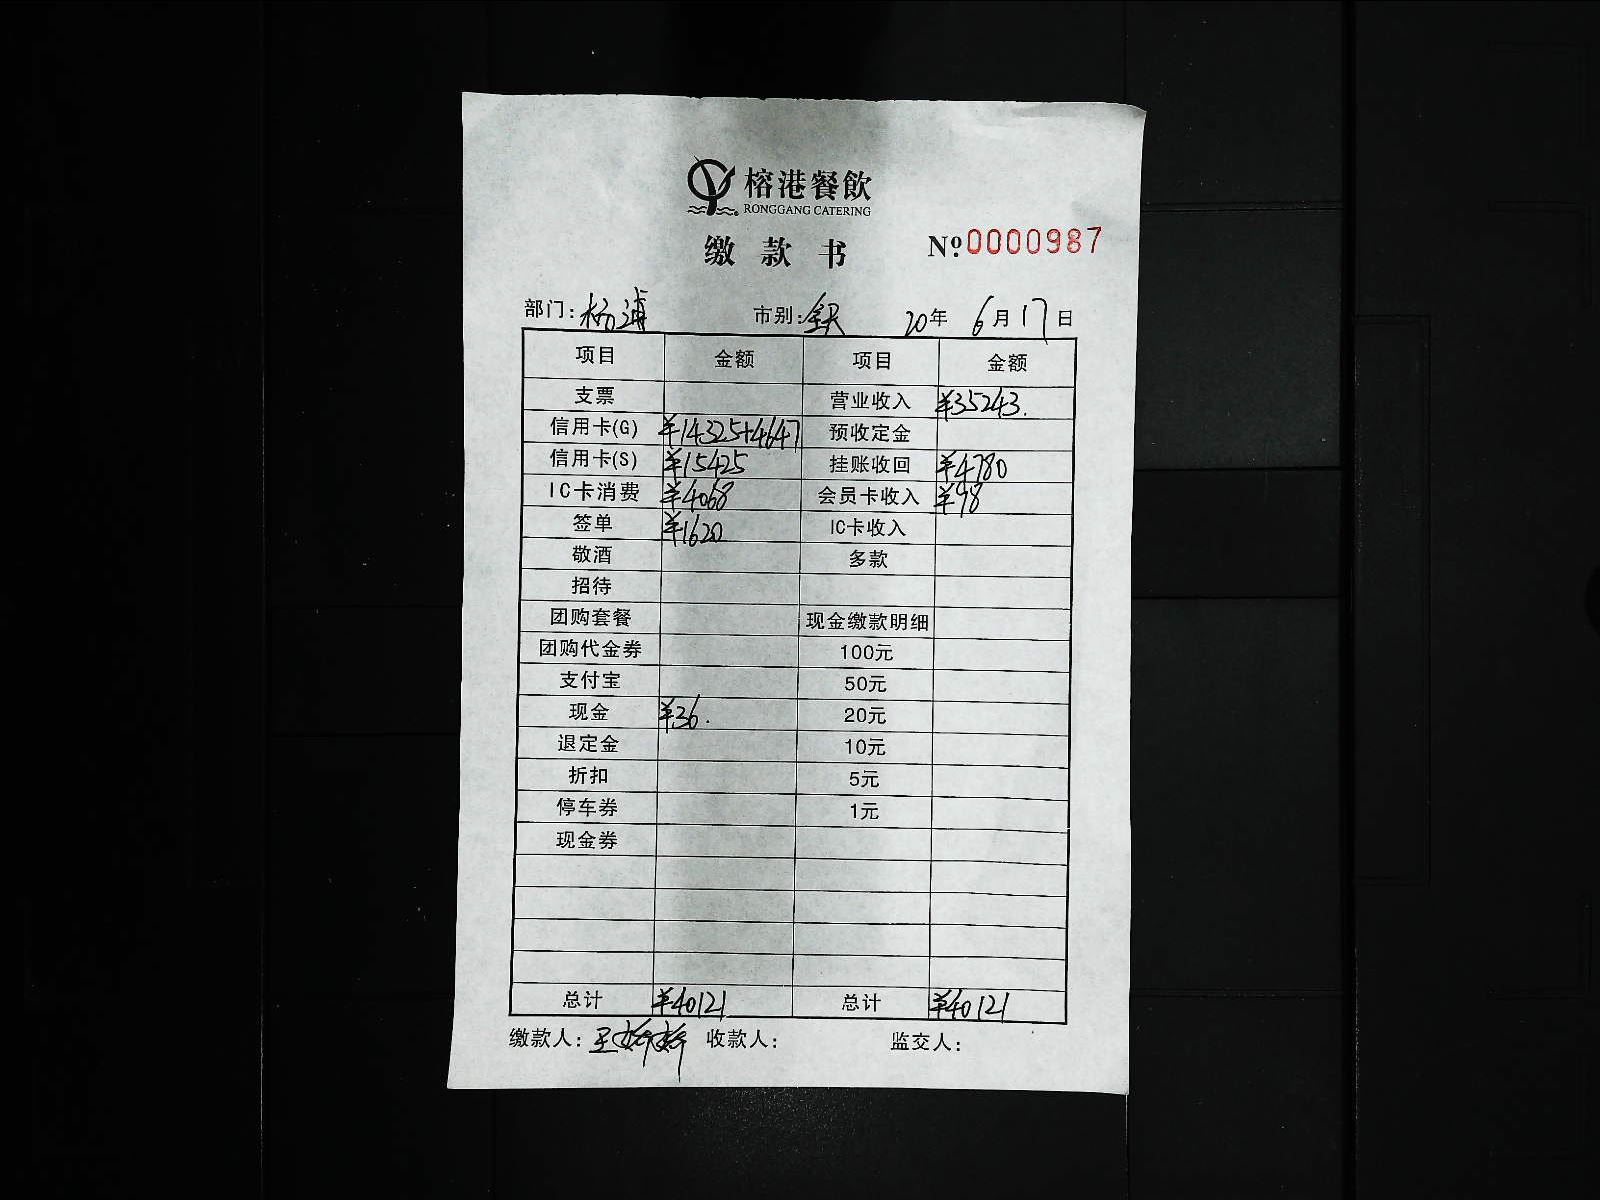 榕港餐飲
RONGGANG CATERING
缴款书 Nº 0000987
部门: 杨浦 市别: 全天 20年 6月 17日
项目 金额 项目 金额
支票 营业收入 ¥35243.
信用卡(G) ¥14325+4647 预收定金
信用卡(S) ¥15425 挂账收回 ¥4780
IC卡消费 ¥4068 会员卡收入 ¥98
签单 ¥1620 IC卡收入
敬酒 多款
招待
团购套餐 现金缴款明细
团购代金券 100元
支付宝 50元
现金 ¥36. 20元
退定金 10元
折扣 5元
停车券 1元
现金券
总计 ¥40121 总计 ¥40121
缴款人: 王娇娇 收款人: 监交人: